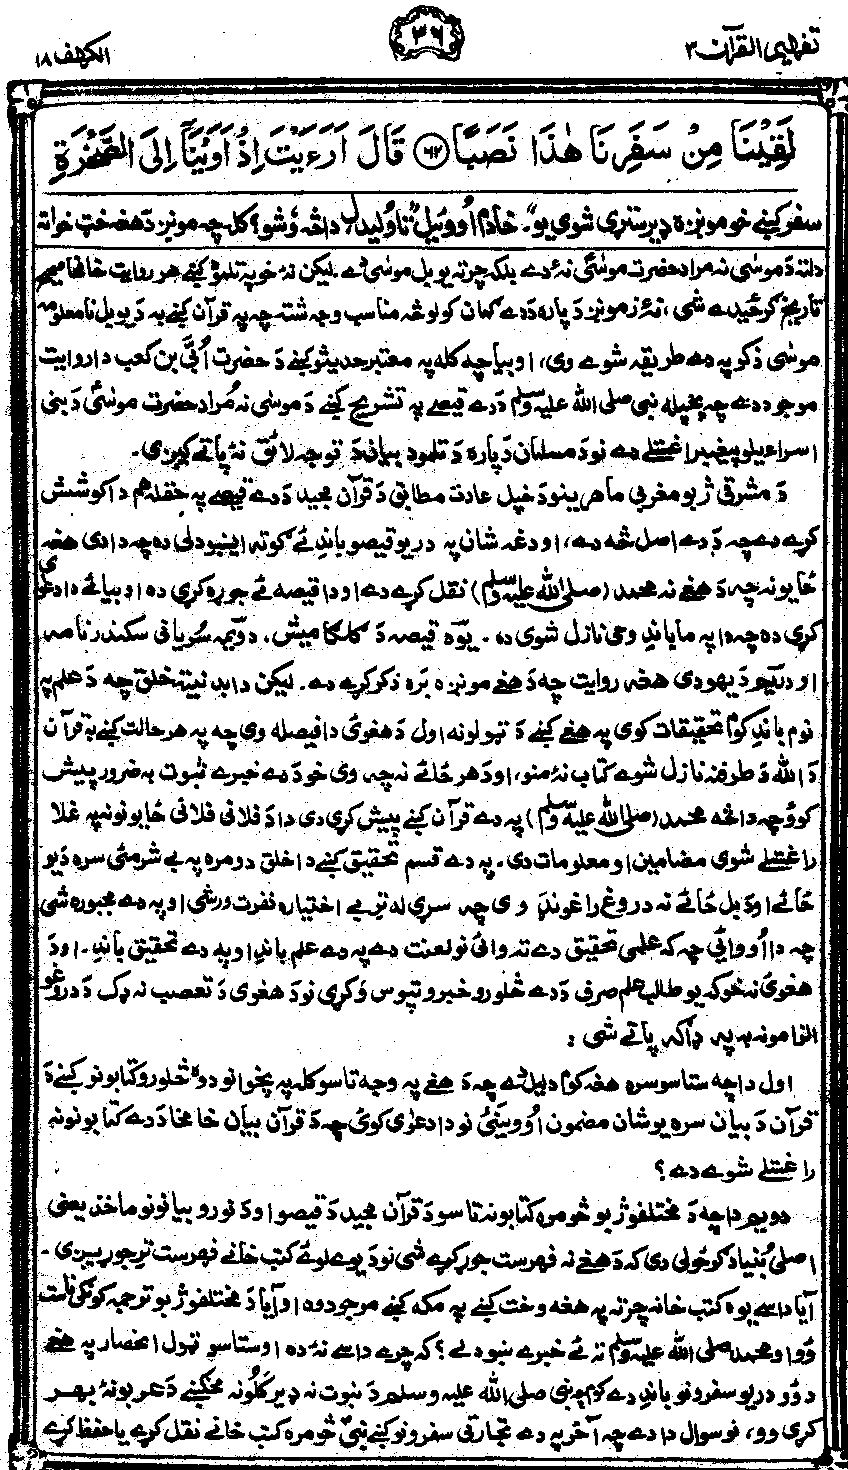 تفهیم القرآن ۳
۳۶
الکهف ۱۸
لَقِيْنَا مِنْ سَفَرِنَا هٰذَا نَصَبًا ﴿۶۲﴾ قَالَ اَرَءَيْتَ اِذْ اَوَيْنَآ اِلَى الصَّخْرَةِ
سفر کښے خو مونږه ډیر ستړی شوی یو". خادم اُووئیل "تا ولیدل، دا څه وُشو؟ کله چه مونږ د هغه خټ خواته
دلته د موسٰی نه مراد حضرت موسٰیؑ نهٔ دے بلکه چرته یو بل موسٰی دے. لیکن نهٔ خو په تلمود کښے هر روایت خامخا صحیح
تاریخ ګرځیدے شی، نهٔ زمونږ د پاره د دے ګمان کولو څه مناسب وجه شته چه په قرآن کښے به د یو بل نامعلومه
موسٰی ذکر په دے طریقه شوے وی، او بیا چه کله په معتبر حدیثو کښے د حضرت اُبَیّ بن کعب دا روایت
موجود دے چه پخپله نبی صلی الله علیه وسلم د دے قیصے په تشریح کښے د موسٰی نه مُراد حضرت موسٰیؑ د بنی
اسراءیلو پیغمبر اغستلے دے نو د مسلمان د پاره د تلمود بیان د توجه لائق نهٔ پاتے کیږی.
د مشرقی ژبو مغربی ماهرینو د خپل عادت مطابق د قرآن مجید د دے قیصے په حقله هم دا کوشش
کړے دے چه د دے اصل څه دے، او دغه شان په دریو قیصو باندے ئے ګوته ایښودلی ده چه دا دی هغه
ځایونه چه د هغے نه محمد (صلی الله علیه وسلم) نقل کړے دے او دا قیصه ئے جوړه کړی ده او بیا ئے دا دعوٰی
کړی ده چه دا په ما باندے وحی نازل شوی ده. یوه قیصه د ګلګامیش، دویمه سُریانی سکندر نامه
او دریم د یهودی هغه روایت چه د هغے مونږه بره ذکر کړے دے. لیکن دا بد نیته خلق چه د علم په
نوم باندے کوم تحقیقات کوی په هغے کښے د ټولو نه اول د هغوی دا فیصله وی چه په هر حالت کښے به قرآن
د الله د طرفنه نازل شوے کتاب نهٔ منو، او د هر ځائے نه چه وی خو د دے خبرے ثبوت به ضرور پیش
کوو چه دا څه محمد (صلی الله علیه وسلم) په دے قرآن کښے پیش کړی دی دا د فلانی فلانی ځایونو نه په غلا
را غستلے شوی مضامین او معلومات دی. په دے قسم تحقیق کښے دا خلق دومره په بے شرمئ سره د یو
ځائے او د بل ځائے نه دروغ را غونډ وی چه سړی له ترے بے اختیاره نفرت ورشی او په دے مجبوره شی
چه دا اُووائی چه که علمی تحقیق دے ته وائی نو لعنت دے په دے علم باندے او په دے تحقیق باندے. او د
هغوی نه خو که یو طالب علم صرف د دے څلورو خبرو تپوس وکړی نو د هغوی د تعصب نه ډک د دروغو
الزامونه به په ډاګه پاتے شی :
اول دا چه ستاسو سره هغه کوم دلیل دے چه د هغے په وجه تاسو کله په پخوانو دوه څلورو کتابونو کښے د
قرآن د بیان سره یو شان مضمون اُووینئ نو دا دعوٰی کوئ چه د قرآن بیان خامخا د دے کتابونو نه
را غستلے شوے دے؟
دویم دا چه د مختلفو ژبو څومره کتابونه تاسو د قرآن مجید د قیصو او د نورو بیانونو ماخذ یعنی
اصلی بُنیاد ګرځولی دی که د هغے نه فهرست جوړ کړے شی نو د یوے لوئے کتب خانے فهرست ترے جوړیږی.
آیا داسے یوه کتب خانه چرته په هغه وخت کښے په مکه کښے موجود وه او آیا د مختلفو ژبو ترجمه کوونکی ناست
وو او محمد صلی الله علیه وسلم ته ئے خبرے ښودلے؟ که چرے داسے نهٔ ده او ستاسو ټول انحصار په هغے
دوو دریو سفرونو باندے دے کوم چه نبی صلی الله علیه وسلم د نبوت نه ډیر کلونه مخکښے د عرب نه بهر
کړی وو، نو سوال دا دے چه آخر په دے تجارتی سفرونو کښے نبیؐ څومره کتب خانے نقل کړے یا حفظ کړے